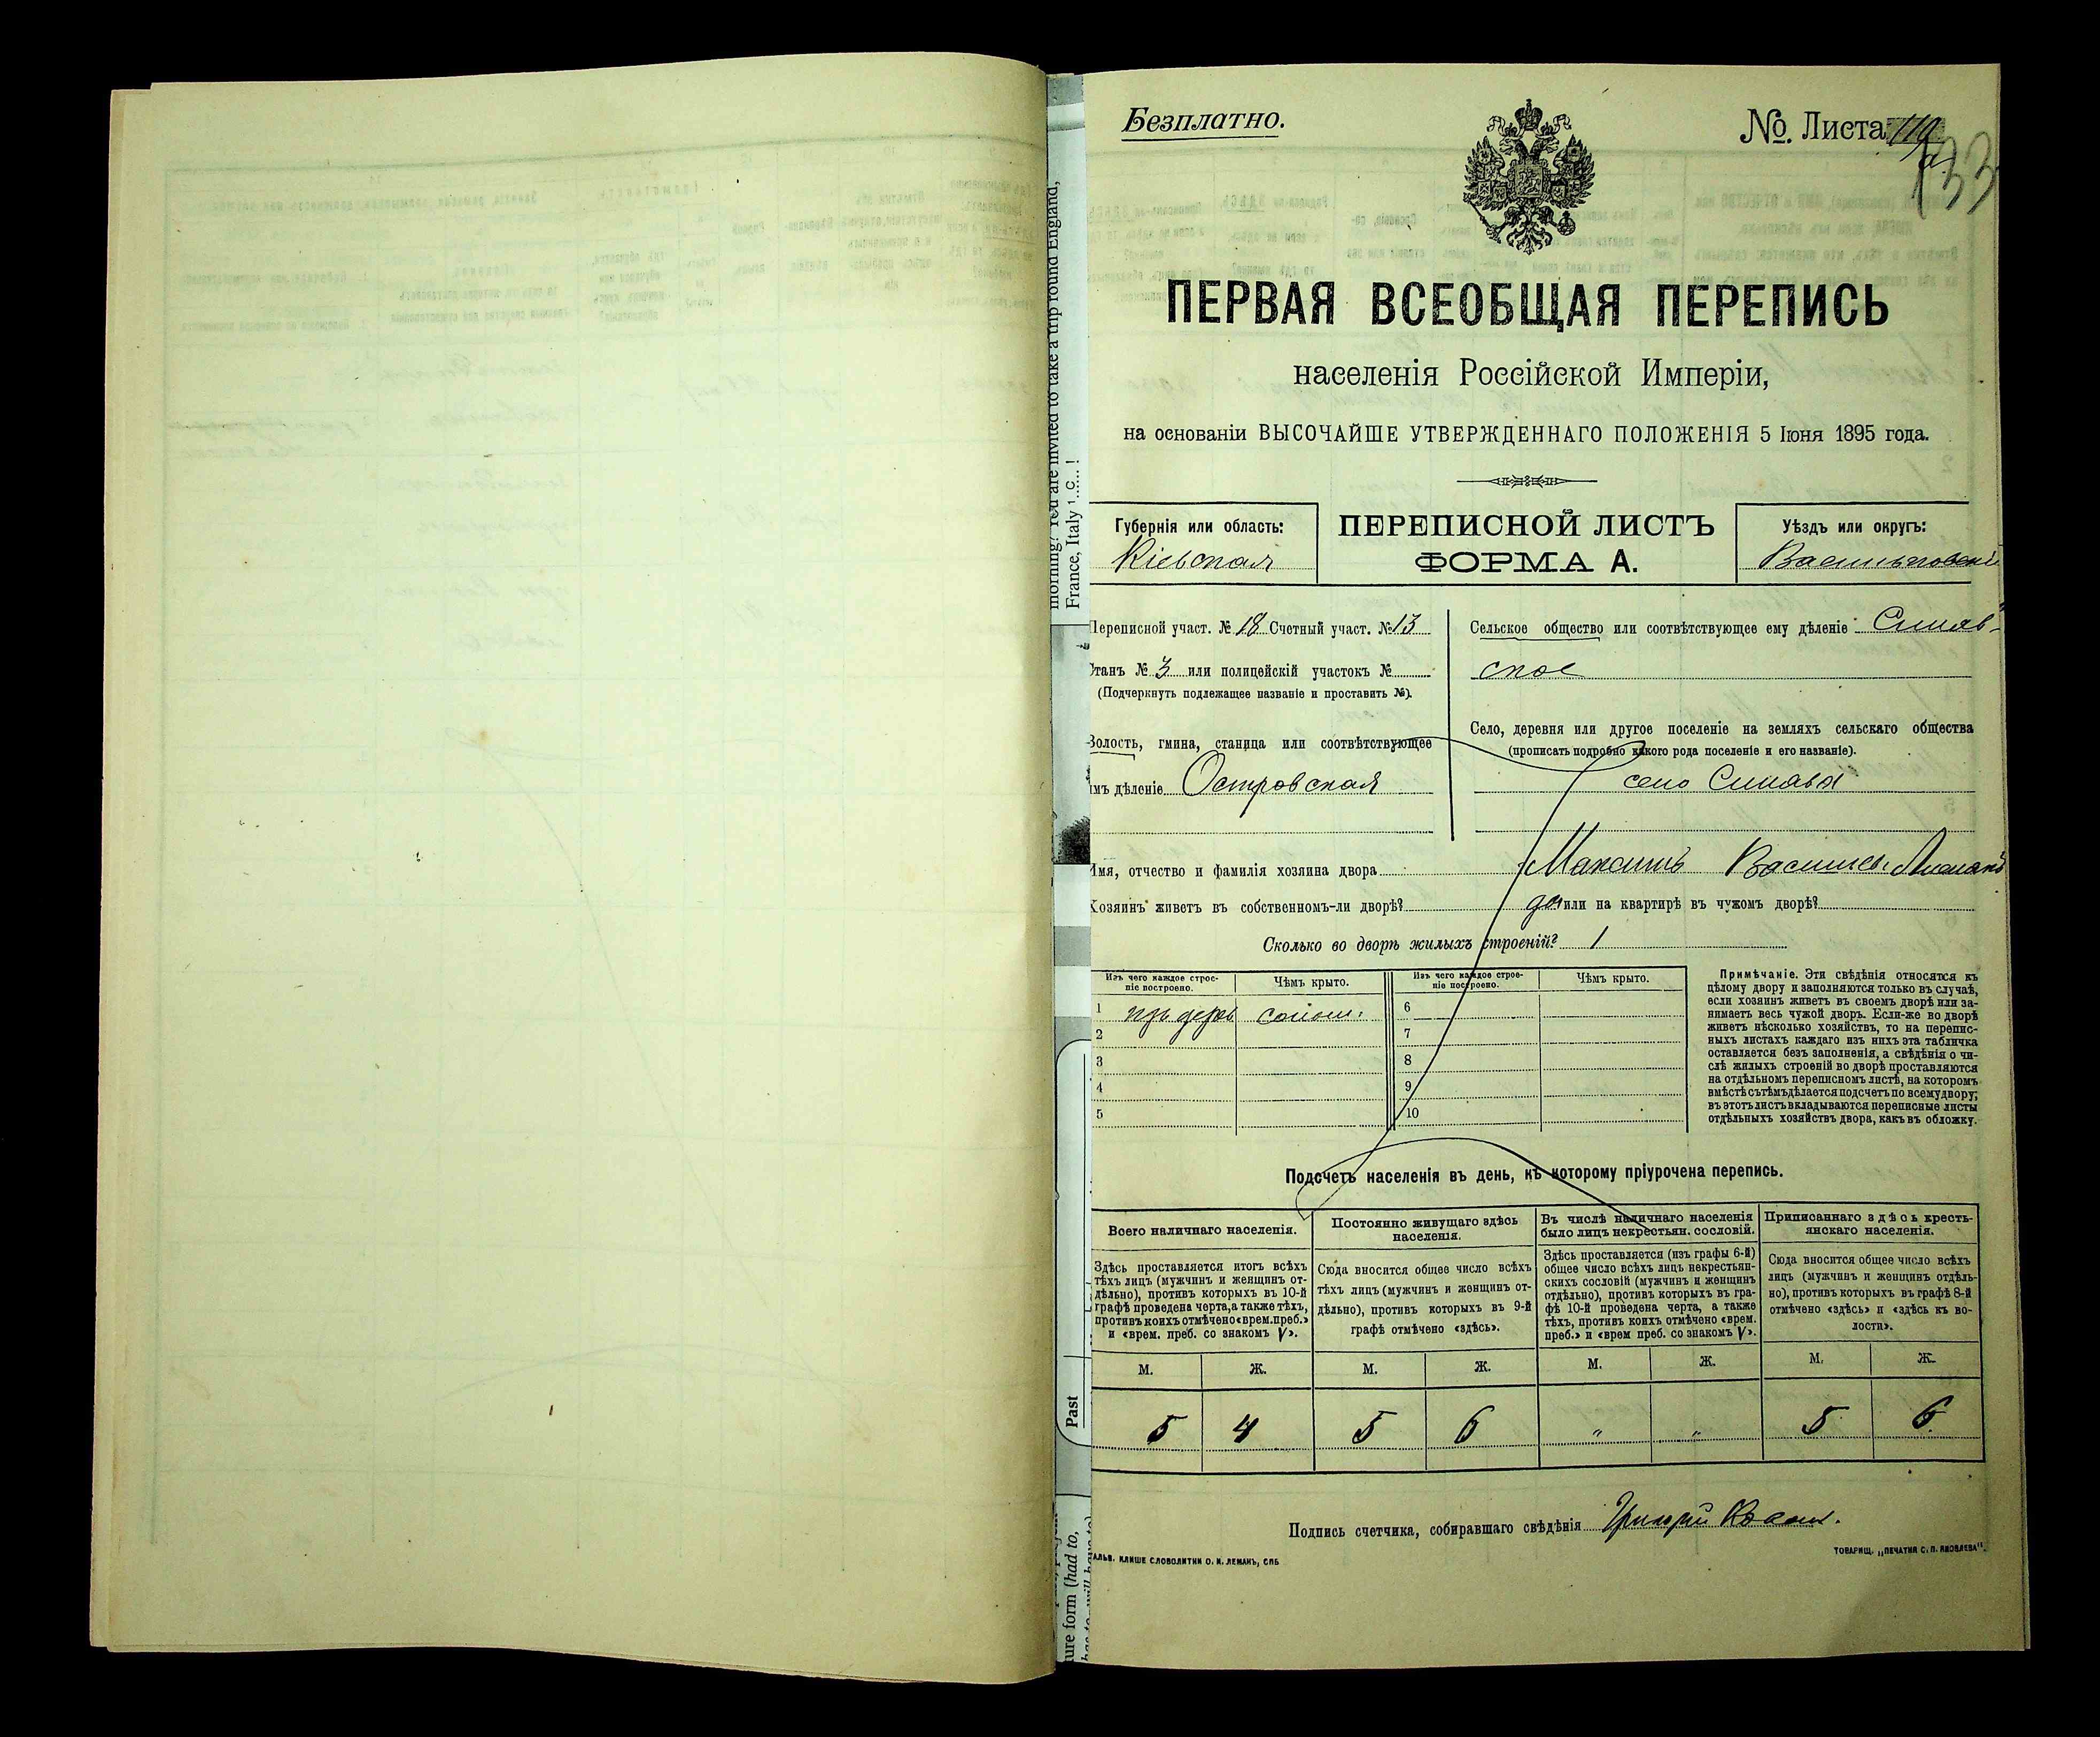 morning! You are invited to take a trip round England,
France, Italy
Past
ure form (had to,
Безплатно.
№ Листа 119
133
ПЕРВАЯ ВСЕОБЩАЯ ПЕРЕПИСЬ
населенія Россійской Имперіи,
на основаніи ВЫСОЧАЙШЕ УТВЕРЖДЕННАГО ПОЛОЖЕНІЯ 5 Іюня 1895 года.
Губернія или область:
Кіевская
ПЕРЕПИСНОЙ ЛИСТЪ
ФОРМА А.
Уѣздъ или округъ:
Васильковскій
Переписной участ. № 18 Счетный участ. № 13
Станъ № 3 или полицейскій участокъ №
(Подчеркнуть подлежащее названіе и проставить №).
Волость, гмина, станица или соотвѣтствующее
имъ дѣленіе Островская
Сельское общество или соотвѣтствующее ему дѣленіе Синяв-
ское
Село, деревня или другое поселеніе на земляхъ сельскаго общества
(прописать подробно какого рода поселеніе и его названіе).
село Синява
Имя, отчество и фамилія хозяина двора Максимъ Васильев
Хозяинъ живетъ въ собственномъ-ли дворѣ? да или на квартирѣ въ чужомъ дворѣ?
Сколько во дворѣ жилыхъ строеній? 1
Изъ чего каждое строе-
ніе построено.
Чѣмъ крыто.
Изъ чего каждое строе-
ніе построено.
Чѣмъ крыто.
1 изъ дерев солом. 6
2 7
3 8
4 9
5 10
Примѣчаніе. Эти свѣдѣнія относятся къ
цѣлому двору и заполняются только въ случаѣ,
если хозяинъ живетъ въ своемъ дворѣ или за-
нимаетъ весь чужой дворъ. Если-же во дворѣ
живетъ нѣсколько хозяйствъ, то на перепис-
ныхъ листахъ каждаго изъ нихъ эта табличка
оставляется безъ заполненія, а свѣдѣнія о чи-
слѣ жилыхъ строеній во дворѣ проставляются
на отдѣльномъ переписномъ листѣ, на которомъ
вмѣстѣ съ тѣмъ дѣлается подсчетъ по всему двору;
въ этотъ листъ вкладываются переписные листы
отдѣльныхъ хозяйствъ двора, какъ въ обложку.
Подсчетъ населенія въ день, къ которому пріурочена перепись.
Всего наличнаго населенія.
Здѣсь проставляется итогъ всѣхъ
тѣхъ лицъ (мужчинъ и женщинъ от-
дѣльно), противъ которыхъ въ 10-й
графѣ проведена черта, а также тѣхъ,
противъ коихъ отмѣчено «врем. преб.»
и «врем. преб. со знакомъ V».
Постоянно живущаго здѣсь
населенія.
Сюда вносится общее число всѣхъ
тѣхъ лицъ (мужчинъ и женщинъ от-
дѣльно), противъ которыхъ въ 9-й
графѣ отмѣчено «здѣсь».
Въ числѣ наличнаго населенія
было лицъ некрестьян. сословій.
Здѣсь проставляется (изъ графы 6-й)
общее число всѣхъ лицъ некрестьян-
скихъ сословій (мужчинъ и женщинъ
отдѣльно), противъ которыхъ въ гра-
фѣ 10-й проведена черта, а также
тѣхъ, противъ коихъ отмѣчено «врем.
преб.» и «врем преб. со знакомъ V».
Приписаннаго здѣсь кресть-
янскаго населенія.
Сюда вносится общее число всѣхъ
лицъ (мужчинъ и женщинъ отдѣль-
но), противъ которыхъ въ графѣ 8-й
отмѣчено «здѣсь» и «здѣсь къ во-
лости».
М. Ж. М. Ж. М. Ж. М. Ж.
5 4 5 6 " " 5 6
Подпись счетчика, собиравшаго свѣдѣнія Григорій
ГАЛЬВ. КЛИШЕ СЛОВОЛИТНИ О. И. ЛЕМАНЪ, СПБ
ТОВАРИЩ. „ПЕЧАТНЯ С. П. ЯКОВЛЕВА".